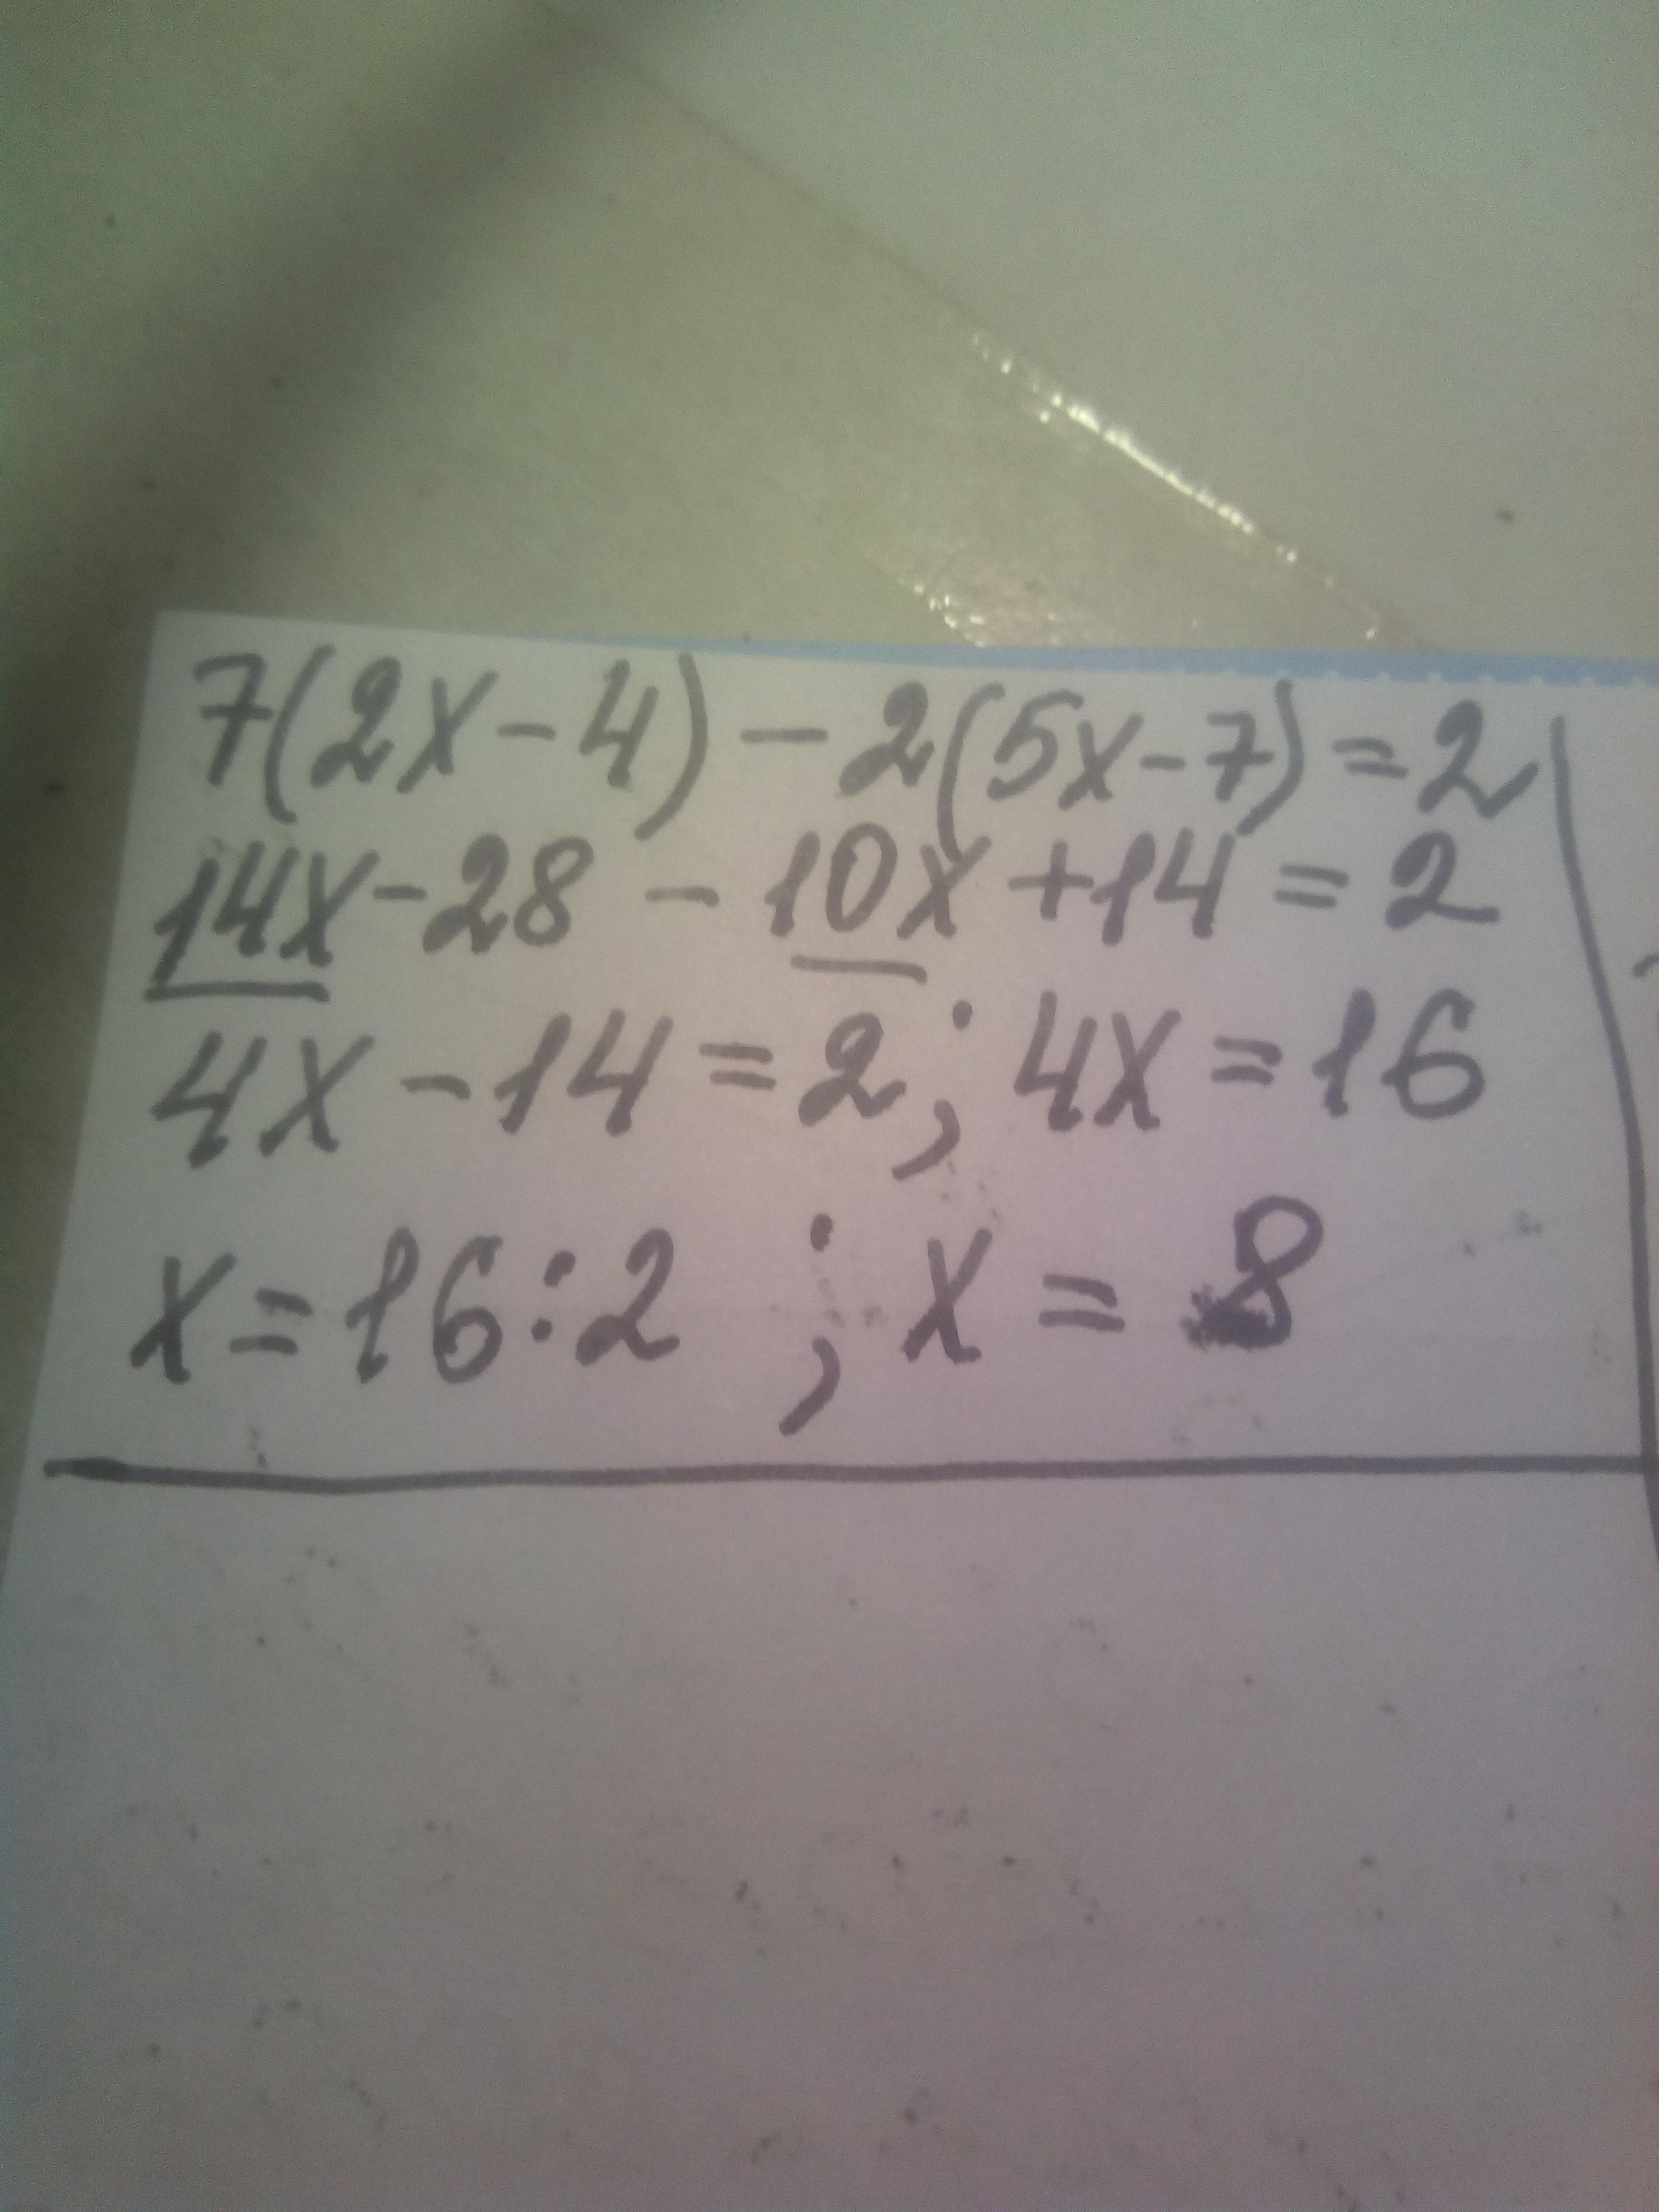 7(2x-4)-2(5x-7)=2
14x-28-10x+14=2
4x-14=2; 4x=16
x=16:2 ; x=8